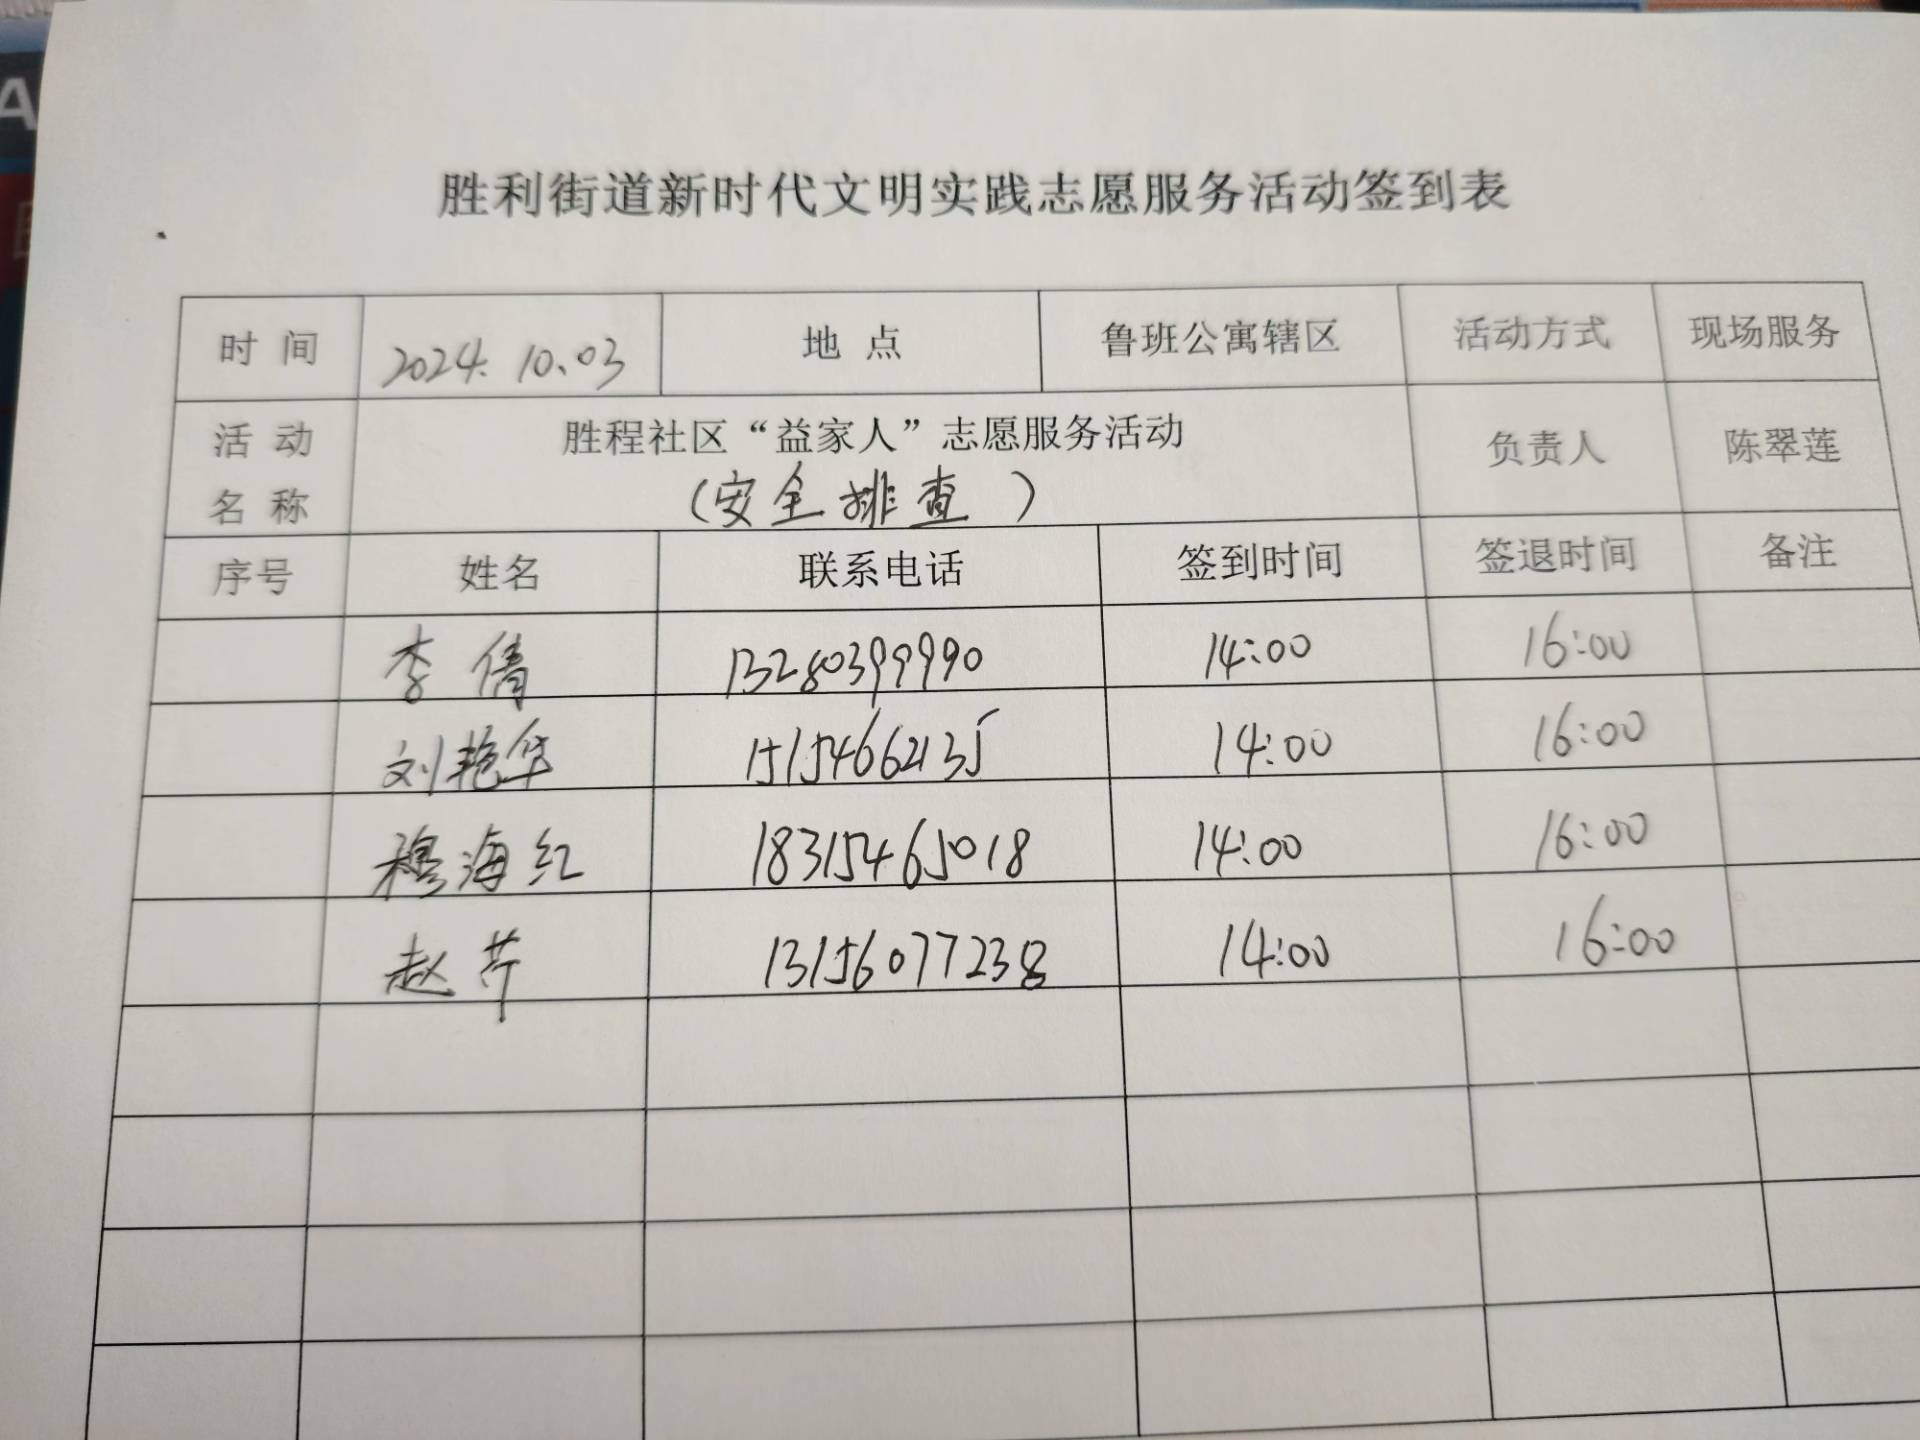 胜利街道新时代文明实践志愿服务活动签到表
时 间 2024.10.03 地 点 鲁班公寓辖区 活动方式 现场服务
活 动 名 称 胜程社区“益家人”志愿服务活动 负责人 陈翠莲
(安全排查)
序号 姓名 联系电话 签到时间 签退时间 备注
李倩 13280399990 14:00 16:00
刘艳华 15154662135 14:00 16:00
穆海红 18315465018 14:00 16:00
赵芹 13156077238 14:00 16:00